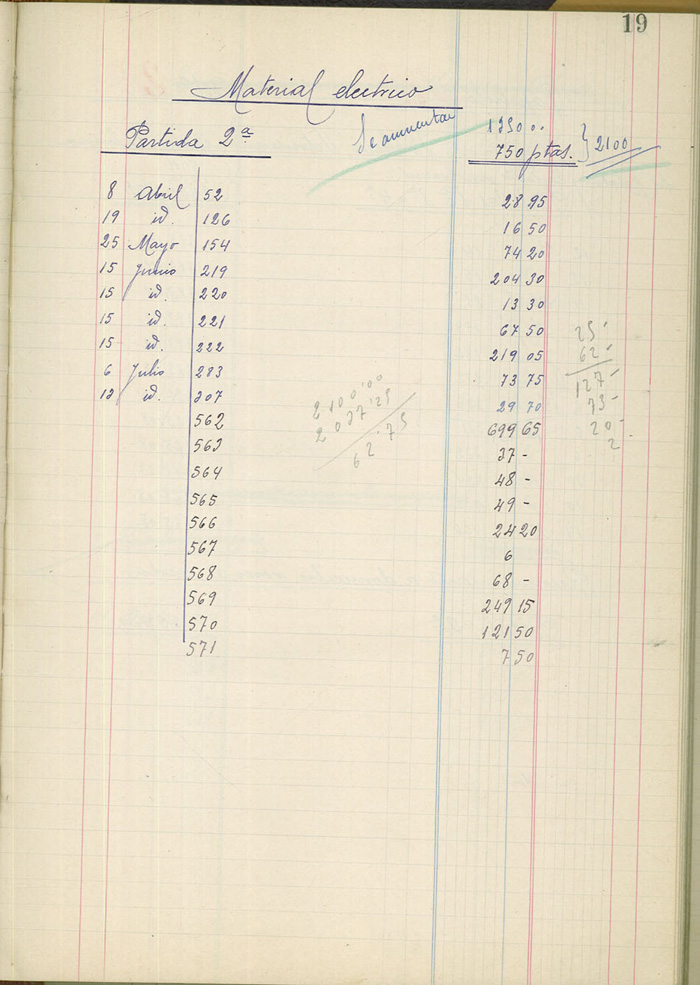 19
Material electrico
Se aumentan 1350 00
Partida 2ª 750 ptas. } 2100
8 Abril 52 28 95
19 id. 126 16 50
25 Mayo 154 74 20
15 Junio 219 204 30
15 id. 220 13 30
15 id. 221 67 50
15 id. 222 219 05
6 Julio 283 73 75
12 id. 307 29 70
562 699 65
563 37 -
564 48 -
565 49 -
566 24 20
567 6
568 68 -
569 249 15
570 121 50
571 7 50
2100'00
2037'25
62'75
25-
62-
127-
73-
20-
2